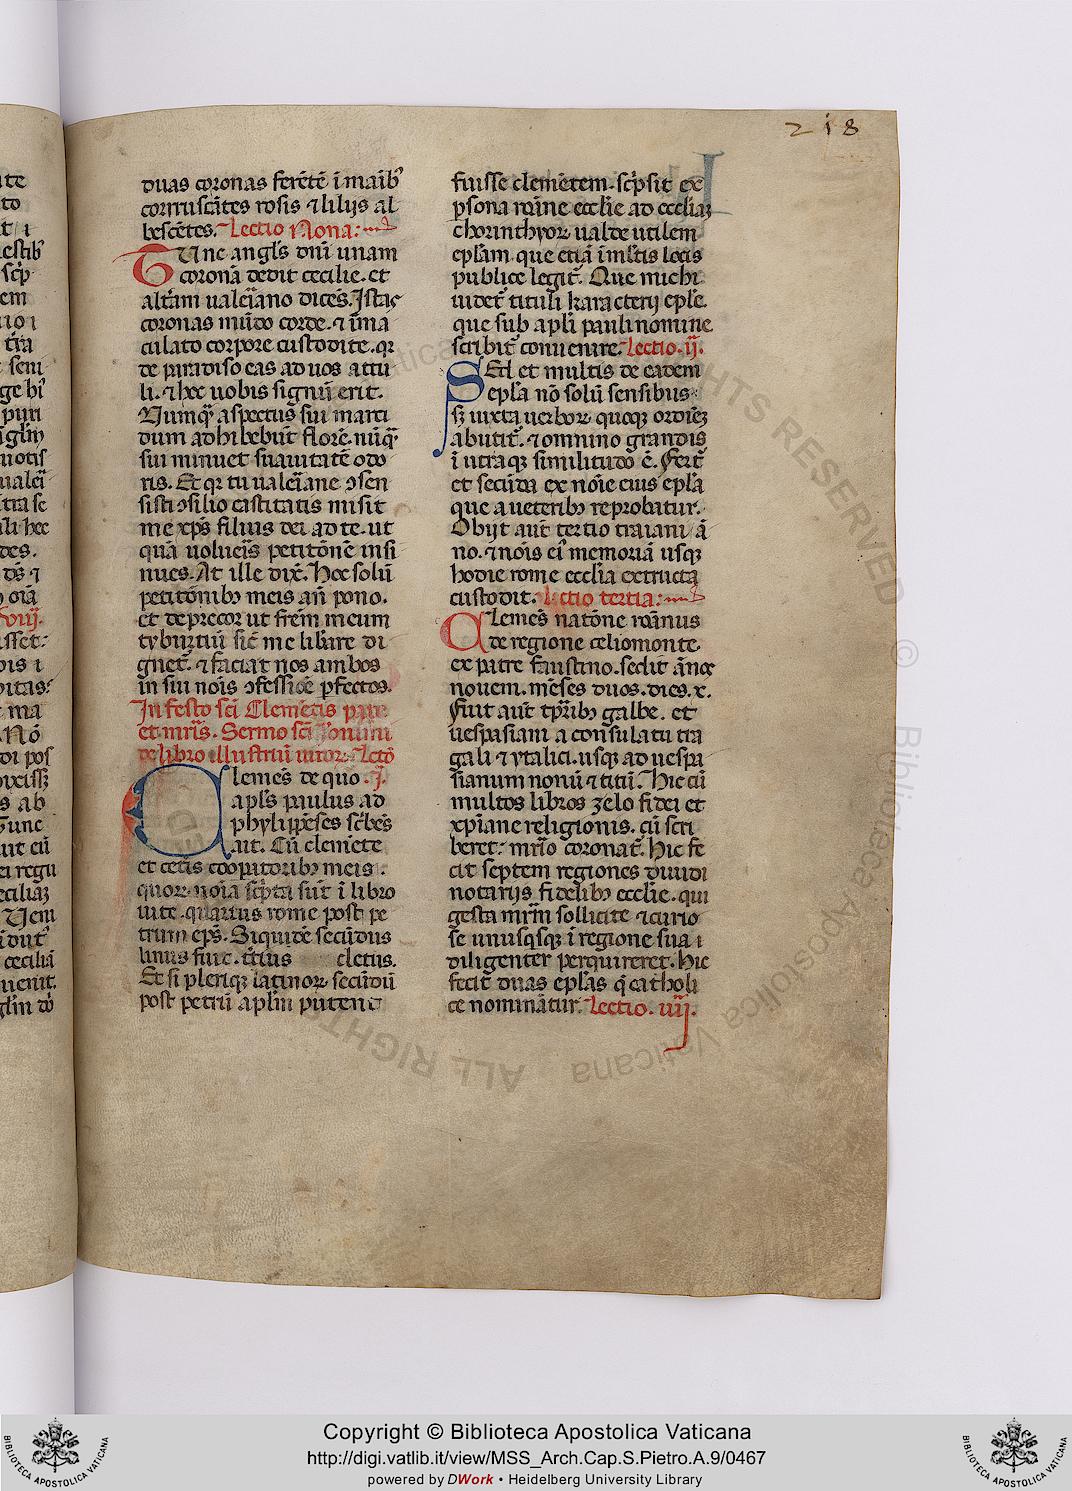 218
duas coronas ferētē ī maib᷒
corruscātes rosis ⁊ lilijs al
bescētes. Lectio Nona:
Tunc angls dnī unam
coronā dedit cecilie. et
altam ualeīano dicēs. Istas
coronas mūdo corde. ⁊ īma
culato corpore custodite. qr
de paradiso eas ad uos attu
li. ⁊ hec uobis signū erit.
Nunq̄ aspectus sui marci
dum adhibebūt florē. nūq̄
sui minuet suauitatē odo
ris. Et qr tu ualeīane ɔsen
sisti ɔsilio castitatis misit
me xp̄s filius dei ad te. ut
quā uolueīs petitōnē insi
nues. At ille dix̄. Hoc solū
petitōnib᷒ meis an̄ pono.
et deprecor ut frēm meum
tyburtiū sic̄ me libare di
gnet᷑. ⁊ faciat nos ambos
in sui nōis ɔfessiōe p̄fectos.
In festo sc̄i Clemētis pape
et mr̄is. Sermo sc̄i Ieronimi
de libro illustriū uiror. Lctō
Clemēs de quo .j.
apl̄s paulus ad
phylippēses sc̄bēs
ait. Cū clemēte
et cet̄is coopatorib᷒ meis.
quor nōia sc̄pta sūt ī libro
uite. quartus rome post pe
trum ep̄s. Siquidē secūdus
linus fuit. t̄tius cletus.
Et si pleriq; latinor secūdū
post petrū apl̄m putent
fuisse clemētem. sc̄psit ex
psona roīne ecclie ad eccliaʒ
chorinthyor ualde utilem
epl̄am. que etiā ī ml̄tis locis
publice legit᷑. Que michi
uidet᷑ tituli karacterij epl̄e.
que sub apl̄i pauli nomine
scribit᷑ conuenire. Lectio .ij.
Sed et multis de eadem
epl̄a nō solū sensibus
sʒ iuxta uerbor quoq; ordiēʒ
abutit᷑. ⁊ omnino grandis
ī utraq; similitudo ē. Fert᷑
et secūda ex nōie eius epl̄a
que a ueterib᷒ reprobatur.
Obijt aut̄ tertio traiani ā
no. ⁊ nōis ei᷒ memoriā usq;
hodie rome ecclia extructa
custodit. Lectio tertia:
Clemēs natōne roānus
de regione celiomonte.
ex patre faustino. sedit ānos
nouem. mēses duos. dies. x.
Fuit aut̄ tp̄rib᷒ galbe. et
uespasiani a consulatu tra
gali ⁊ ytalici. usq; ad uespa
sianum nonū ⁊ titū. Hic cū
multos libros zelo fidei et
xp̄iane religionis. cū scri
beret: mr̄io coronat᷑. Hic fe
cit septem regiones diuidi
notarijs fidelib᷒ ecclie. qui
gesta mr̄m sollicite ⁊ curio
se unusqsq; ī regione sua ı
diligenter perquireret. Hic
fecit duas epl̄as q̄ catholi
ce nominātur. Lectio. iiij.
ALL RIGHTS RESERVED © Biblioteca Apostolica Vaticana
Copyright © Biblioteca Apostolica Vaticana
http://digi.vatlib.it/view/MSS_Arch.Cap.S.Pietro.A.9/0467
powered by DWork • Heidelberg University Library
BIBLIOTECA APOSTOLICA VATICANA
BIBLIOTECA APOSTOLICA VATICANA